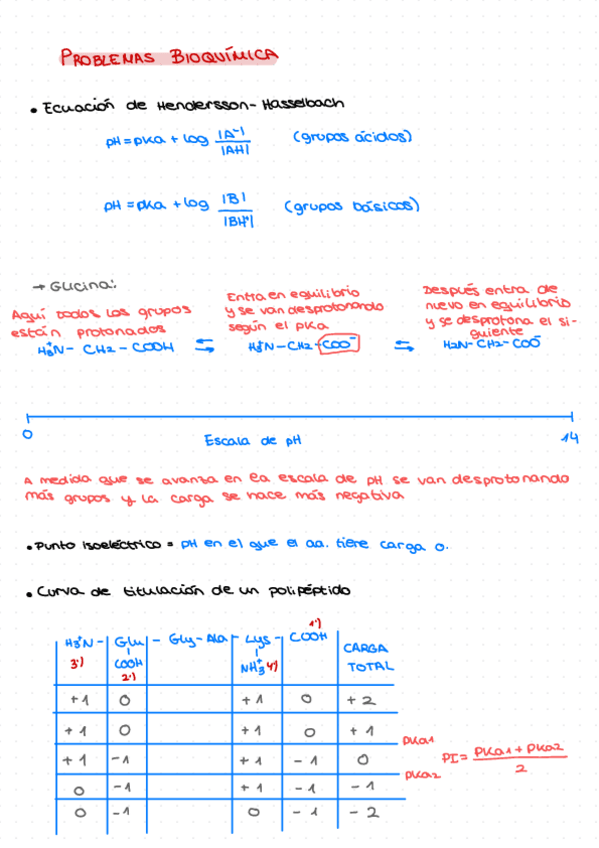 PROBLEMAS BIOQUÍMICA
• Ecuación de Hendersson-Hasselbach
pH = pKa + log |A⁻| / |AH| (grupos ácidos)
pH = pKa + log |B| / |BH⁺| (grupos básicos)
→ Glicina:
Aquí todos los grupos
están protonados
H₃⁺N - CH₂ - COOH
⇆
Entra en equilibrio
y se van desprotonando
según el pKa
H₃⁺N - CH₂ - COO⁻
⇆
Después entra de
nuevo en equilibrio
y se desprotona el si-
guiente
H₂N - CH₂ - COO⁻
0 Escala de pH 14
A medida que se avanza en la escala de pH se van desprotonando
más grupos y la carga se hace más negativa
• Punto isoeléctrico = pH en el que el aa. tiene carga 0.
• Curva de titulación de un polipéptido
1')
H₃⁺N - Glu - Gly - Ala - Lys - COOH CARGA
3') COOH NH₃⁺ 4') TOTAL
2')
+1 0 +1 0 +2
+1 0 +1 0 +1
pKa1
+1 -1 +1 -1 0 PI = pKa1 + pKa2 / 2
pKa2
0 -1 +1 -1 -1
0 -1 0 -1 -2